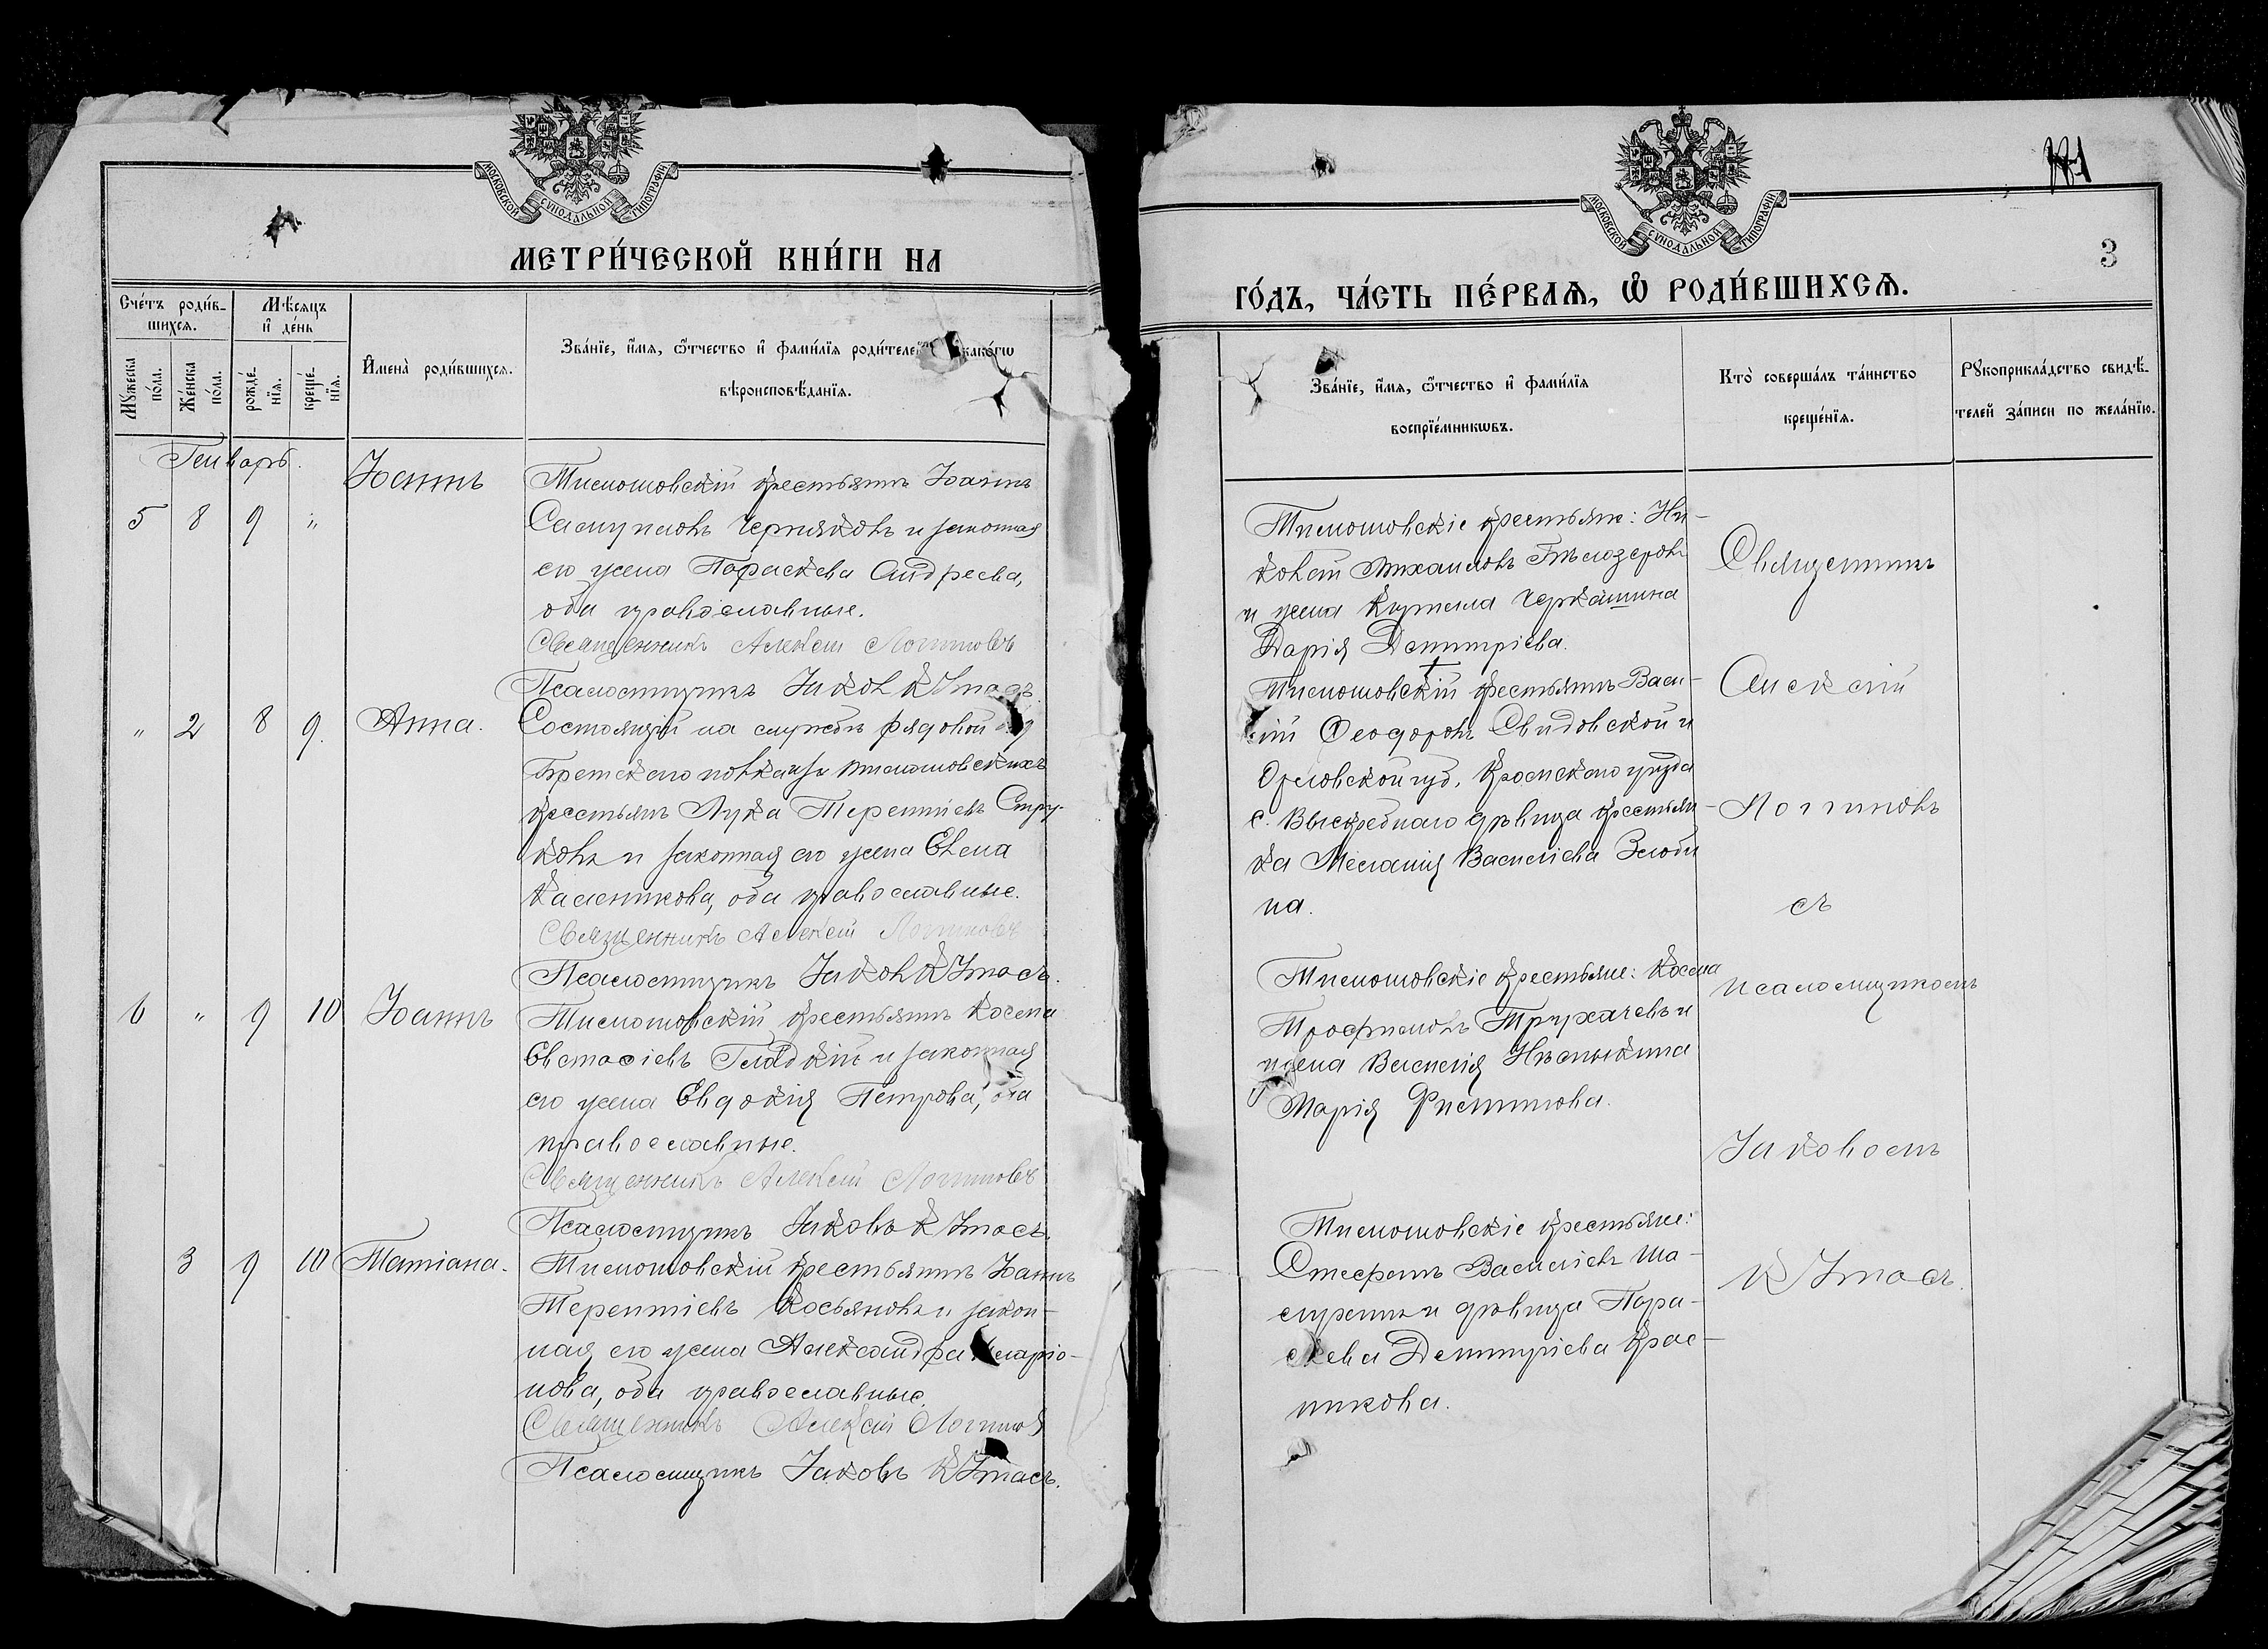 МОСКОВСКОЙ СѴНОДАЛЬНОЙ ТИПОГРАФІИ
МЕТРИ́ЧЕСКОЙ КНИ́ГИ НА
Сче́тъ роди́в-
шихся.
Мѣ́сяцъ
и҆ де́нь
Мꙋ́жеска
по́ла.
Же́нска
по́ла.
рожде́-
нїя.
креще́-
нїя.
И҆мена̀ роди́вшихся.
Зва́нїе, и҆́мя, ѻ҆́тчество и҆ фами́лїя роди́телей како́гѡ
вѣроисповѣ́данїя.
Генварь.
5 8 9 "
Іоаннъ
Тимошовскій крестьянинъ Іоаннъ
Самуиловъ Черняковъ и законная
его жена Параскева Андреева,
оба православные.
Священникъ Алексій Логиновъ
Псаломщикъ Іаковъ
" 2 8 9.
Анна.
Состоящій на службѣ рядовой
полка изъ Тимошовскихъ
крестьянъ Лука Терентіевъ Стру-
ковъ и законная его жена Елена
Каленикова, оба православные.
Священникъ Алексій Логиновъ
Псаломщикъ Іаковъ
6 " 9 10
Іоаннъ
Тимошовскій крестьянинъ Косьма
Евстафіевъ Гладкій и законная
его жена Евдокія Петрова, оба
православные.
Священникъ Алексій Логиновъ
Псаломщикъ Іаковъ
3 9 10
Татіана.
Тимошовскій крестьянинъ Іоаннъ
Терентіевъ Косьяновъ и закон-
ная его жена Александра Иларіо-
нова, оба православные.
Священникъ Алексій Логиновъ
Псаломщикъ Іаковъ
МОСКОВСКОЙ СѴНОДАЛЬНОЙ ТИПОГРАФІИ
3
ГО́ДЪ, ЧА́СТЬ ПЕ́РВАЯ, Ѡ҆ РОДИ́ВШИХСЯ.
Зва́нїе, и҆́мя, ѻ҆́тчество и҆ фами́лїя
воспрїе́мникѡвъ.
Кто̀ соверша́лъ та́инство
креще́нїя.
Рꙋкоприкла́дство свидѣ́-
телей за́писи по жела́нїю.
Тимошовскіе крестьяне: Ни-
Михаиловъ Бѣлозеровъ
и жена Кирилла Черкашина
Дарія Димитріева.
Тимошовскій крестьянинъ Васи-
лій Ѳеодоровъ Свидовской и
Орловской губ. Кромскаго уѣзда
с. дѣвица крестьян-
ка Меланія Васильева Злоби
на.
Тимошовскіе крестьяне: Косьма
Трофимовъ Трухачевъ и
жена Василія
Марія Филиппова.
Тимошовскіе крестьяне:
Стефанъ Васильевъ Ша-
и дѣвица Пара-
скева Димитріева Крас-
никова.
Священникъ
Алексій
Логиновъ
съ
псаломщикомъ
Іаковомъ